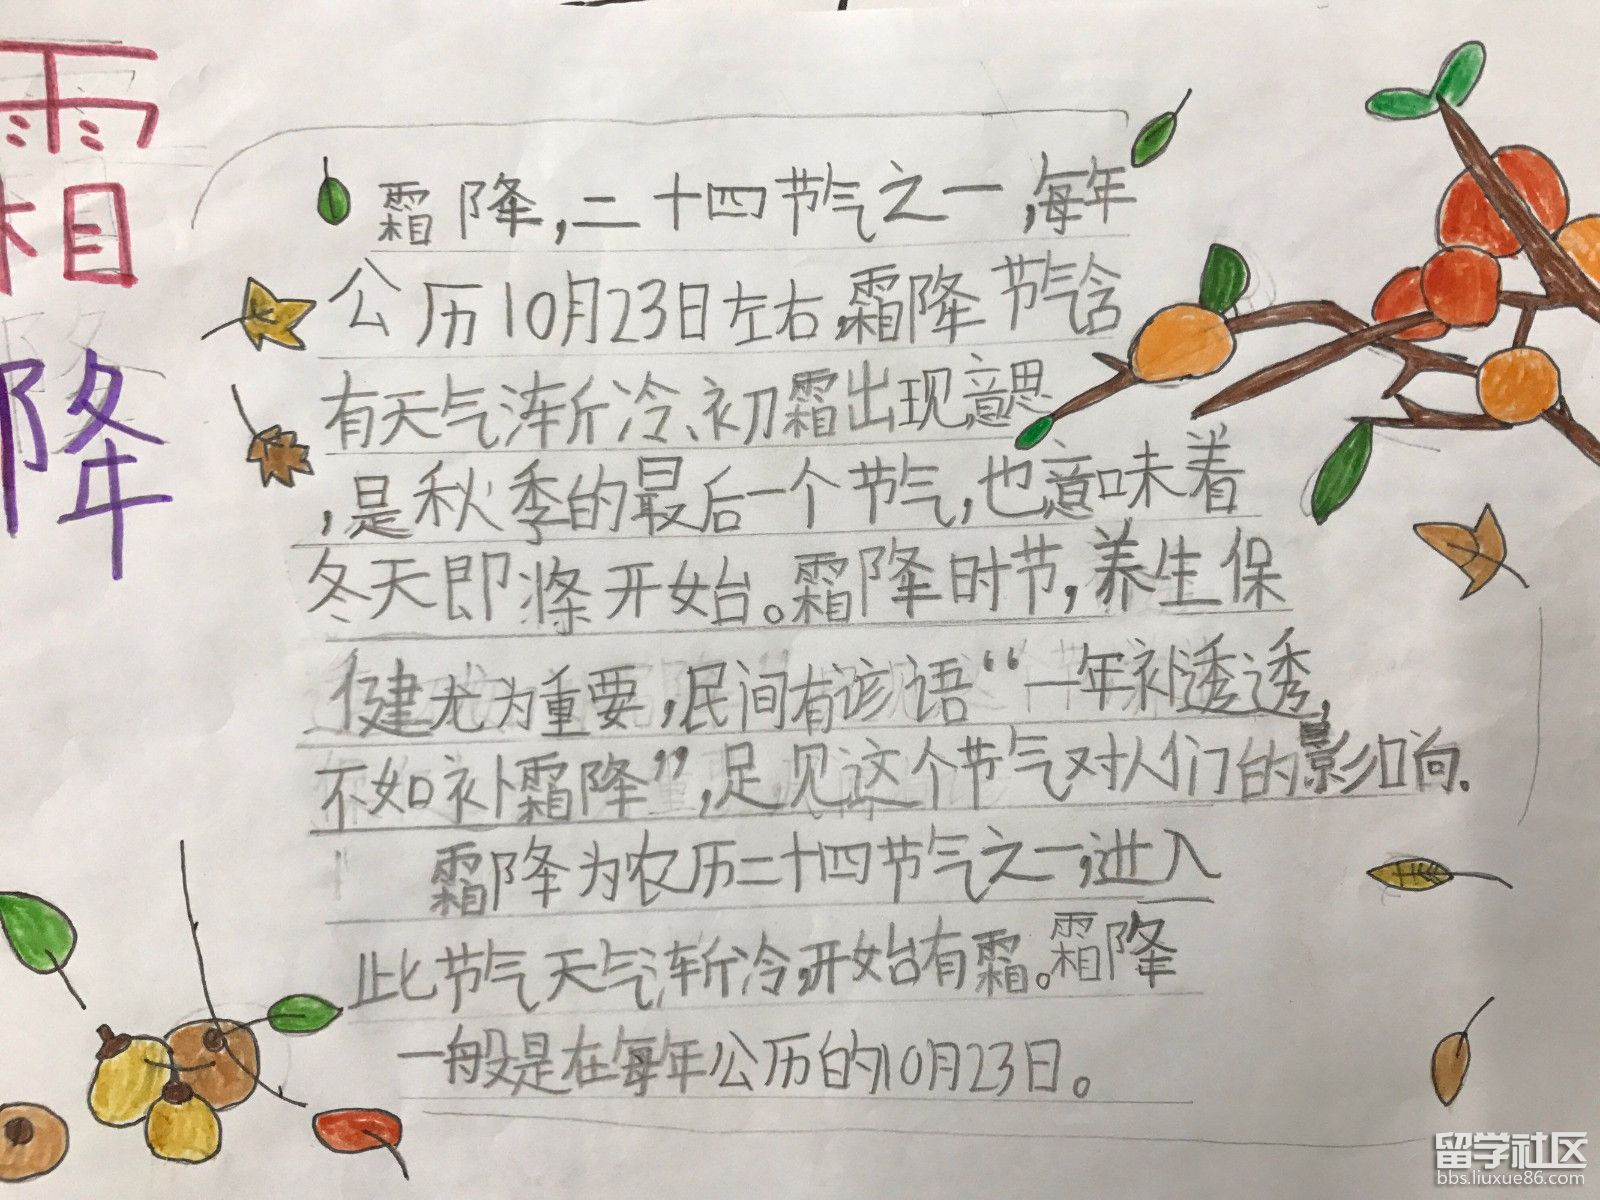 霜降
霜降,二十四节气之一,每年
公历10月23日左右,霜降节气含
有天气渐冷、初霜出现意思
,是秋季的最后一个节气,也意味着
冬天即涤开始。霜降时节,养生保
健尤为重要,民间有谚语“一年补透透,
不如补霜降”,足见这个节气对人们的影响.
霜降为农历二十四节气之一,进入
此节气天气渐冷,开始有霜。霜降
一般是在每年公历的10月23日。
留学社区
bbs.liuxue86.com